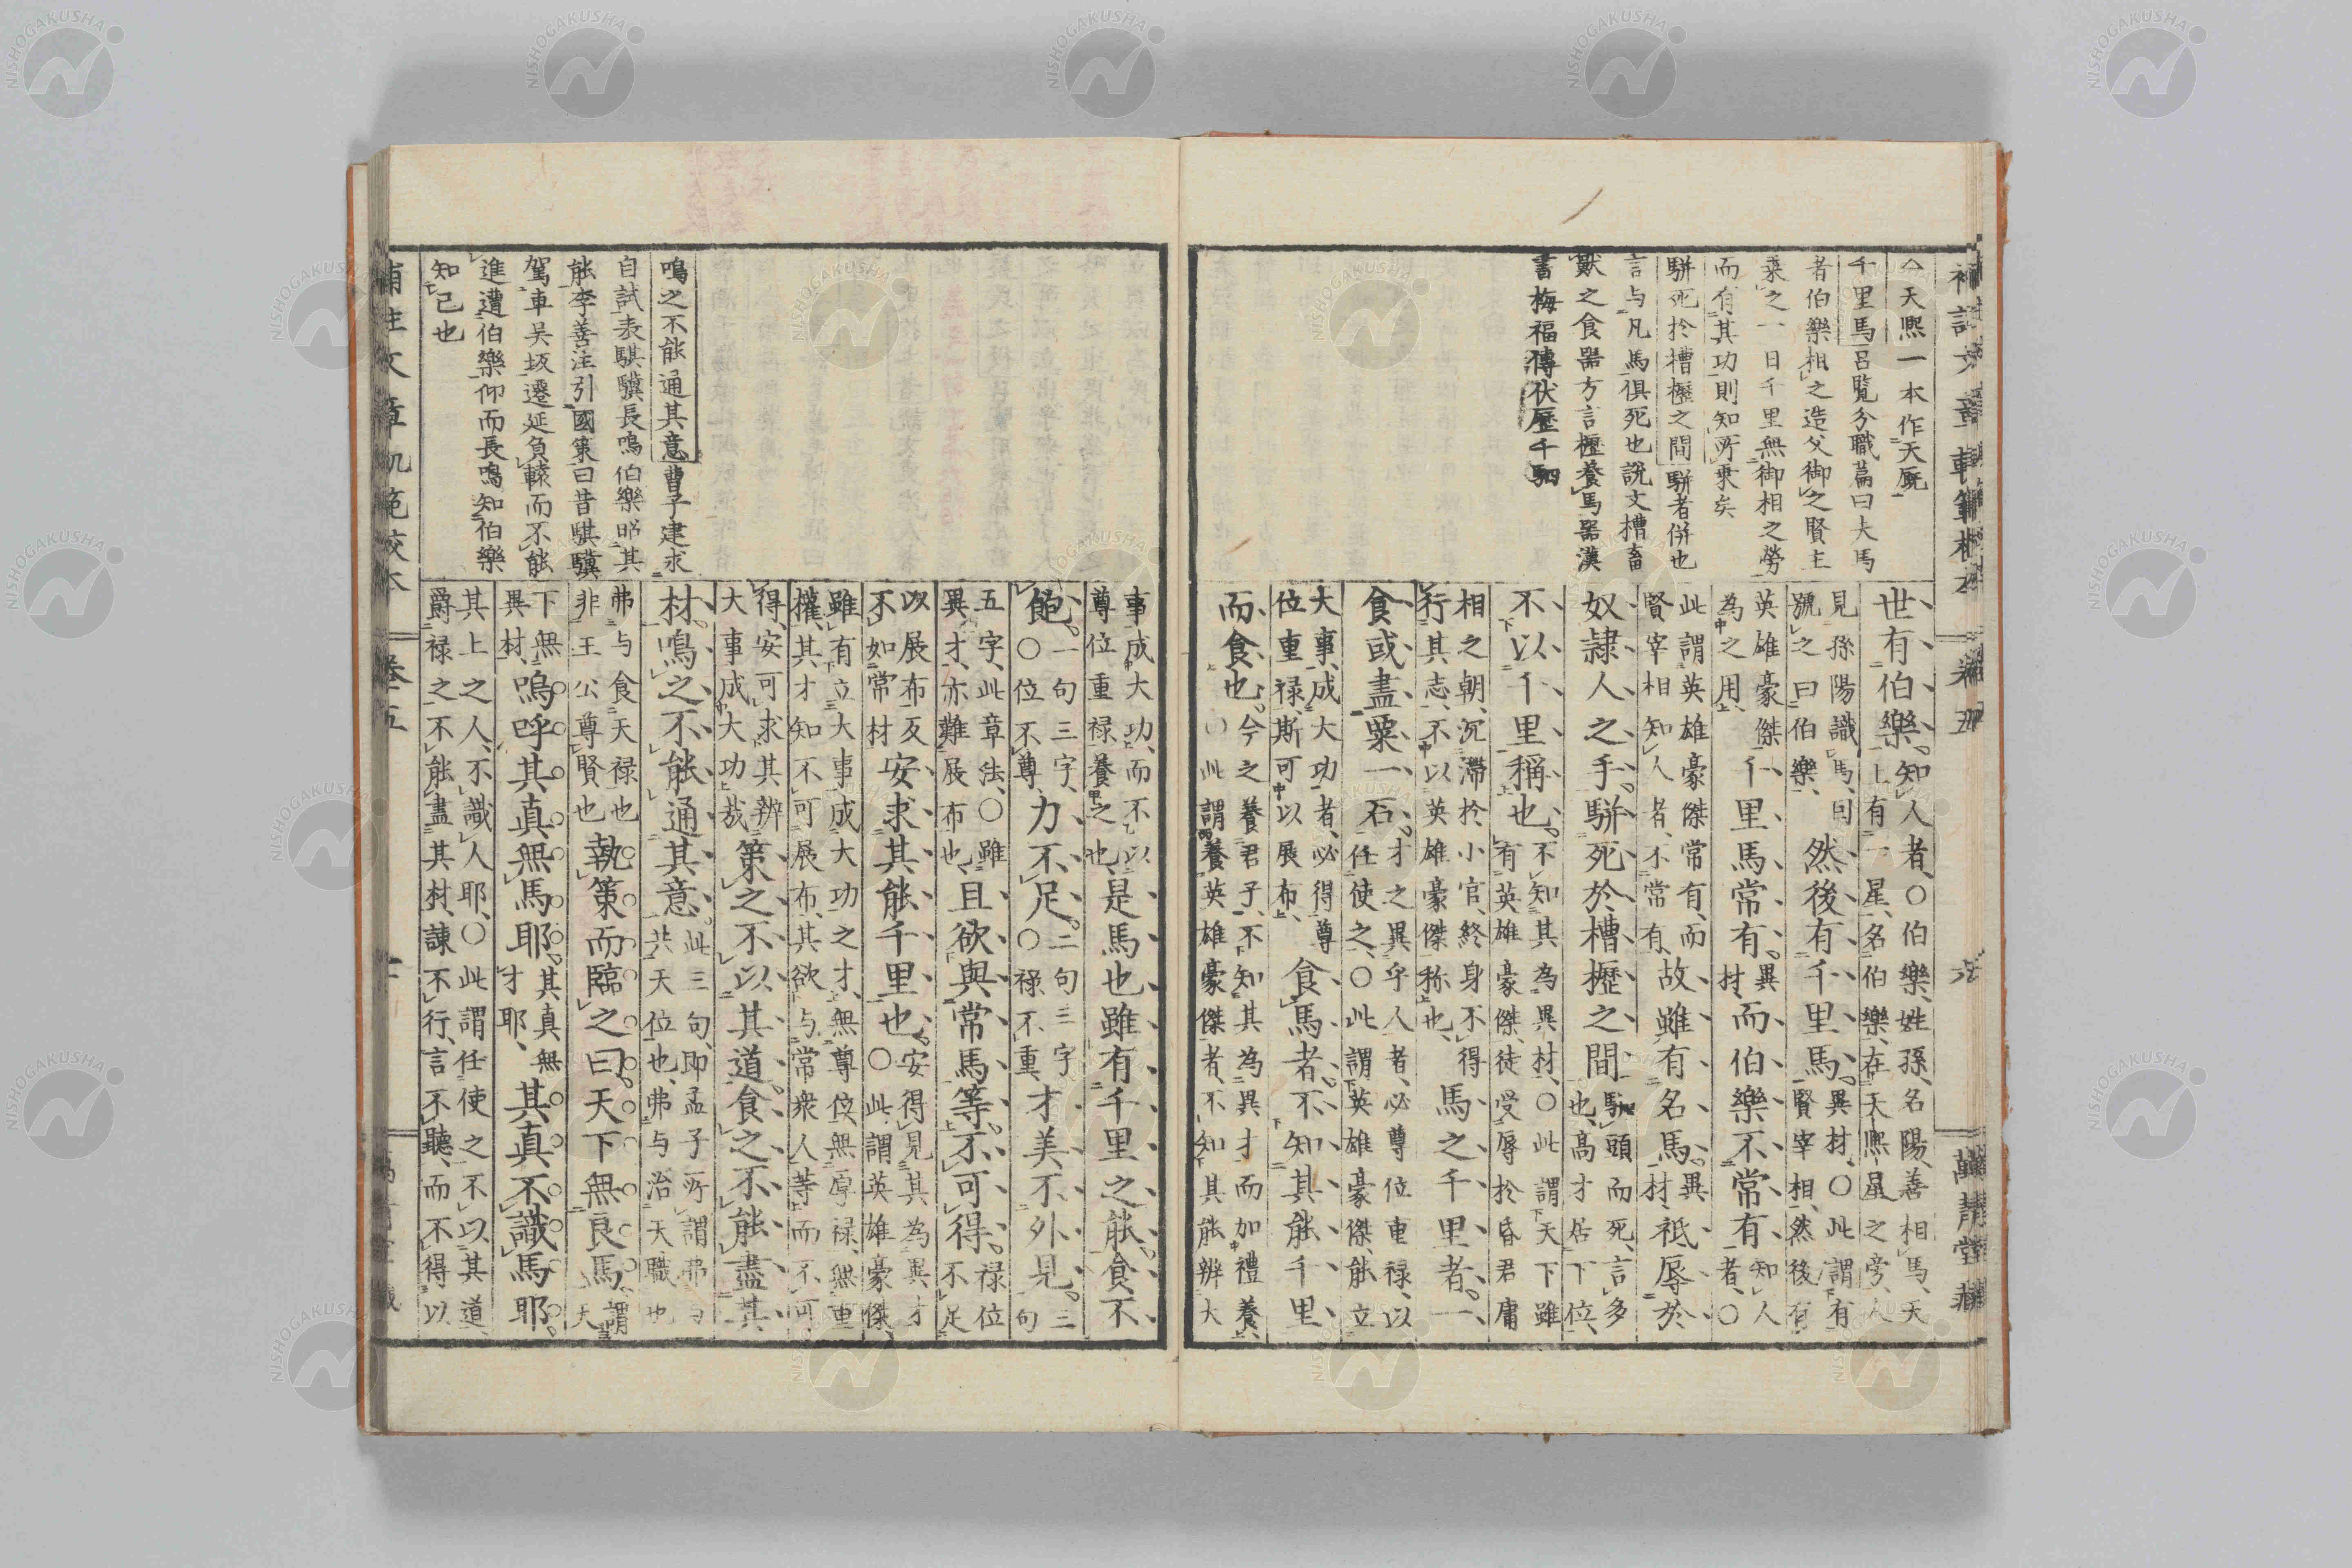 仝天熈一本作天厩
千里馬呂覽分職篇曰夫馬
者伯樂相之造父御之賢主
乘之一日千里無御相之勞
而有其功則知所乘矣
駢死於槽櫪之間駢者併也
言与凡馬俱死也說文槽畜
獸之食器方言櫪養馬器漢
書梅福傳伏歷千駟
世有伯樂。知人者、○伯樂、姓孫、名陽、善相馬、天
上有一星、名伯樂、在天熈星之旁、人
見孫陽識馬、因
號之曰伯樂、然後有千里馬。異材、○此謂有
賢宰相、然後有
英雄豪傑
為之用、千里馬常有。異
材、而伯樂不常有、知人
者、○
此謂英雄豪傑常有、而
賢宰相知人者、不常有、故雖有名馬。異
材、祗辱於
奴隷人之手。駢死於槽櫪之間、駢頭而死、言多
也、高才居下位、
不以千里稱也。不知其為異材、○此謂天下雖
有英雄豪傑、徒受辱於昏君庸
相之朝、沉滯於小官、終身不得
行其志、不以英雄豪傑称也、馬之千里者。一
食或盡粟一石。才之異乎人者、必尊位重禄、以
任使之、○此謂英雄豪傑、能立
大事、成大功者、必得尊
位重禄、斯可以展布、食馬者。不知其能千里
而食也。今之養君子、不知其為異才而加禮養、
○此謂養英雄豪傑者、不知其能辨大
補註文章軌範校本 卷五
鳴之不能通其意曹子建求
自試表騏驥長鳴伯樂昭其
能李善注引國策曰昔騏驥
駕車吴坂遷延負轅而不能
進遭伯樂仰而長鳴知伯樂
知己也
事、成大功、而不以
尊位重禄養之也、是馬也雖有千里之能。食不
飽。一句三字、
○位不尊、力不足。二句三字
○禄不重、才美不外見。三
句
五字、此章法、○雖
異才、亦難展布也、且欲與常馬等。不可得。禄位
不足
以展布、反
不如常材、安求其能千里也。安得見其為異才
○此謂英雄豪傑、
雖有立大事、成大功之才、無尊位、無厚禄、無重
權、其才知不可展布、其欲与常衆人等、而不可
得、安可求其辨
大事、成大功哉、策之不以其道。食之不能盡其
材。鳴之不能通其意。此三句、即孟子所謂弗与
共天位也、弗与治天職也
弗与食天禄也
非王公尊賢也、執策而臨之曰。天下無良馬。謂
天
下無
異材、嗚呼其真無馬耶。其真無
才耶、其真不識馬耶。
其上之人、不識人耶、○此謂任使之不以其道、
爵禄之不能盡其材、諌不行、言不聽、而不得以
補註文章軌範校本 卷五